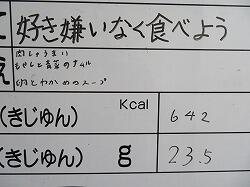 好き嫌いなく食べよう
肉しゅうまい
もやしと青菜のナムル
卵とわかめのスープ
(きじゅん) Kcal 642
(きじゅん) g 23.5